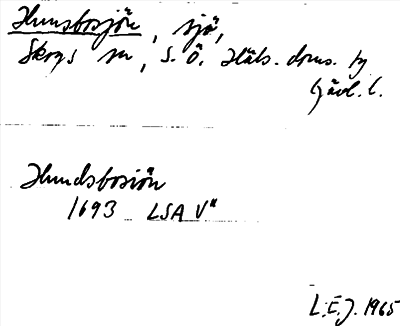 Hunsbosjön, sjö,
Skogs sn, S.Ö. Häls. doms.
Gävl. l.
Hundsbosiön
1693 LSA V"
L.E.J. 1965